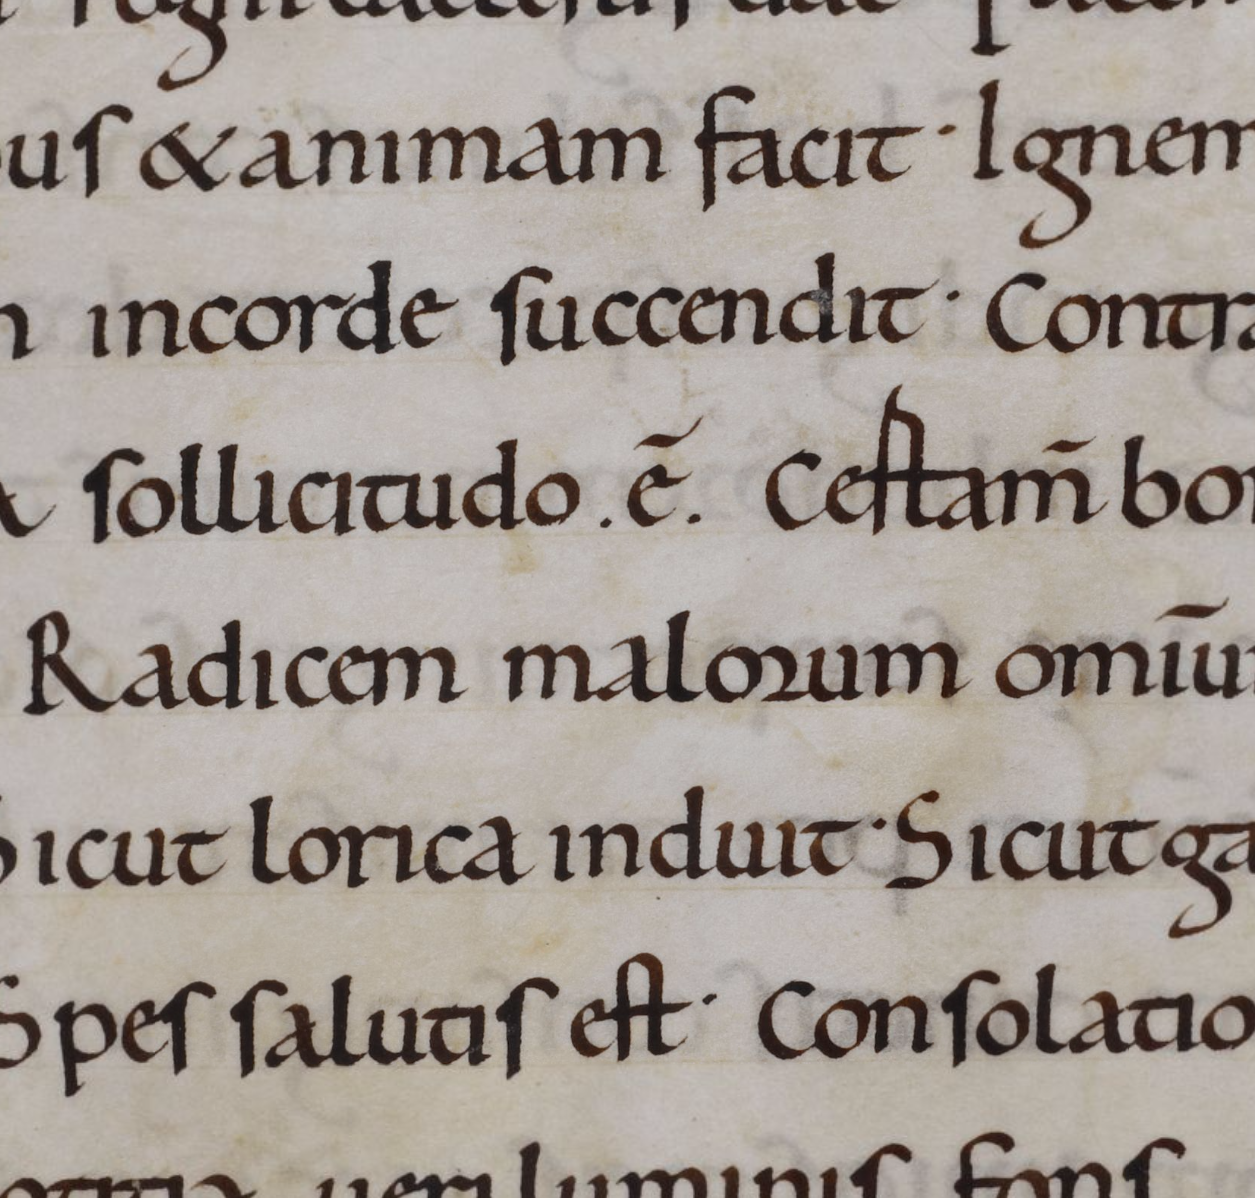 us & animam facit · Ignem
incorde succendit · Contra
sollicitudo .ē. Cestam̄ bon
Radicem malorum omīu
Sicut lorica induit · Sicut ga
Spes salutis est · Consolatio
veri luminis fons